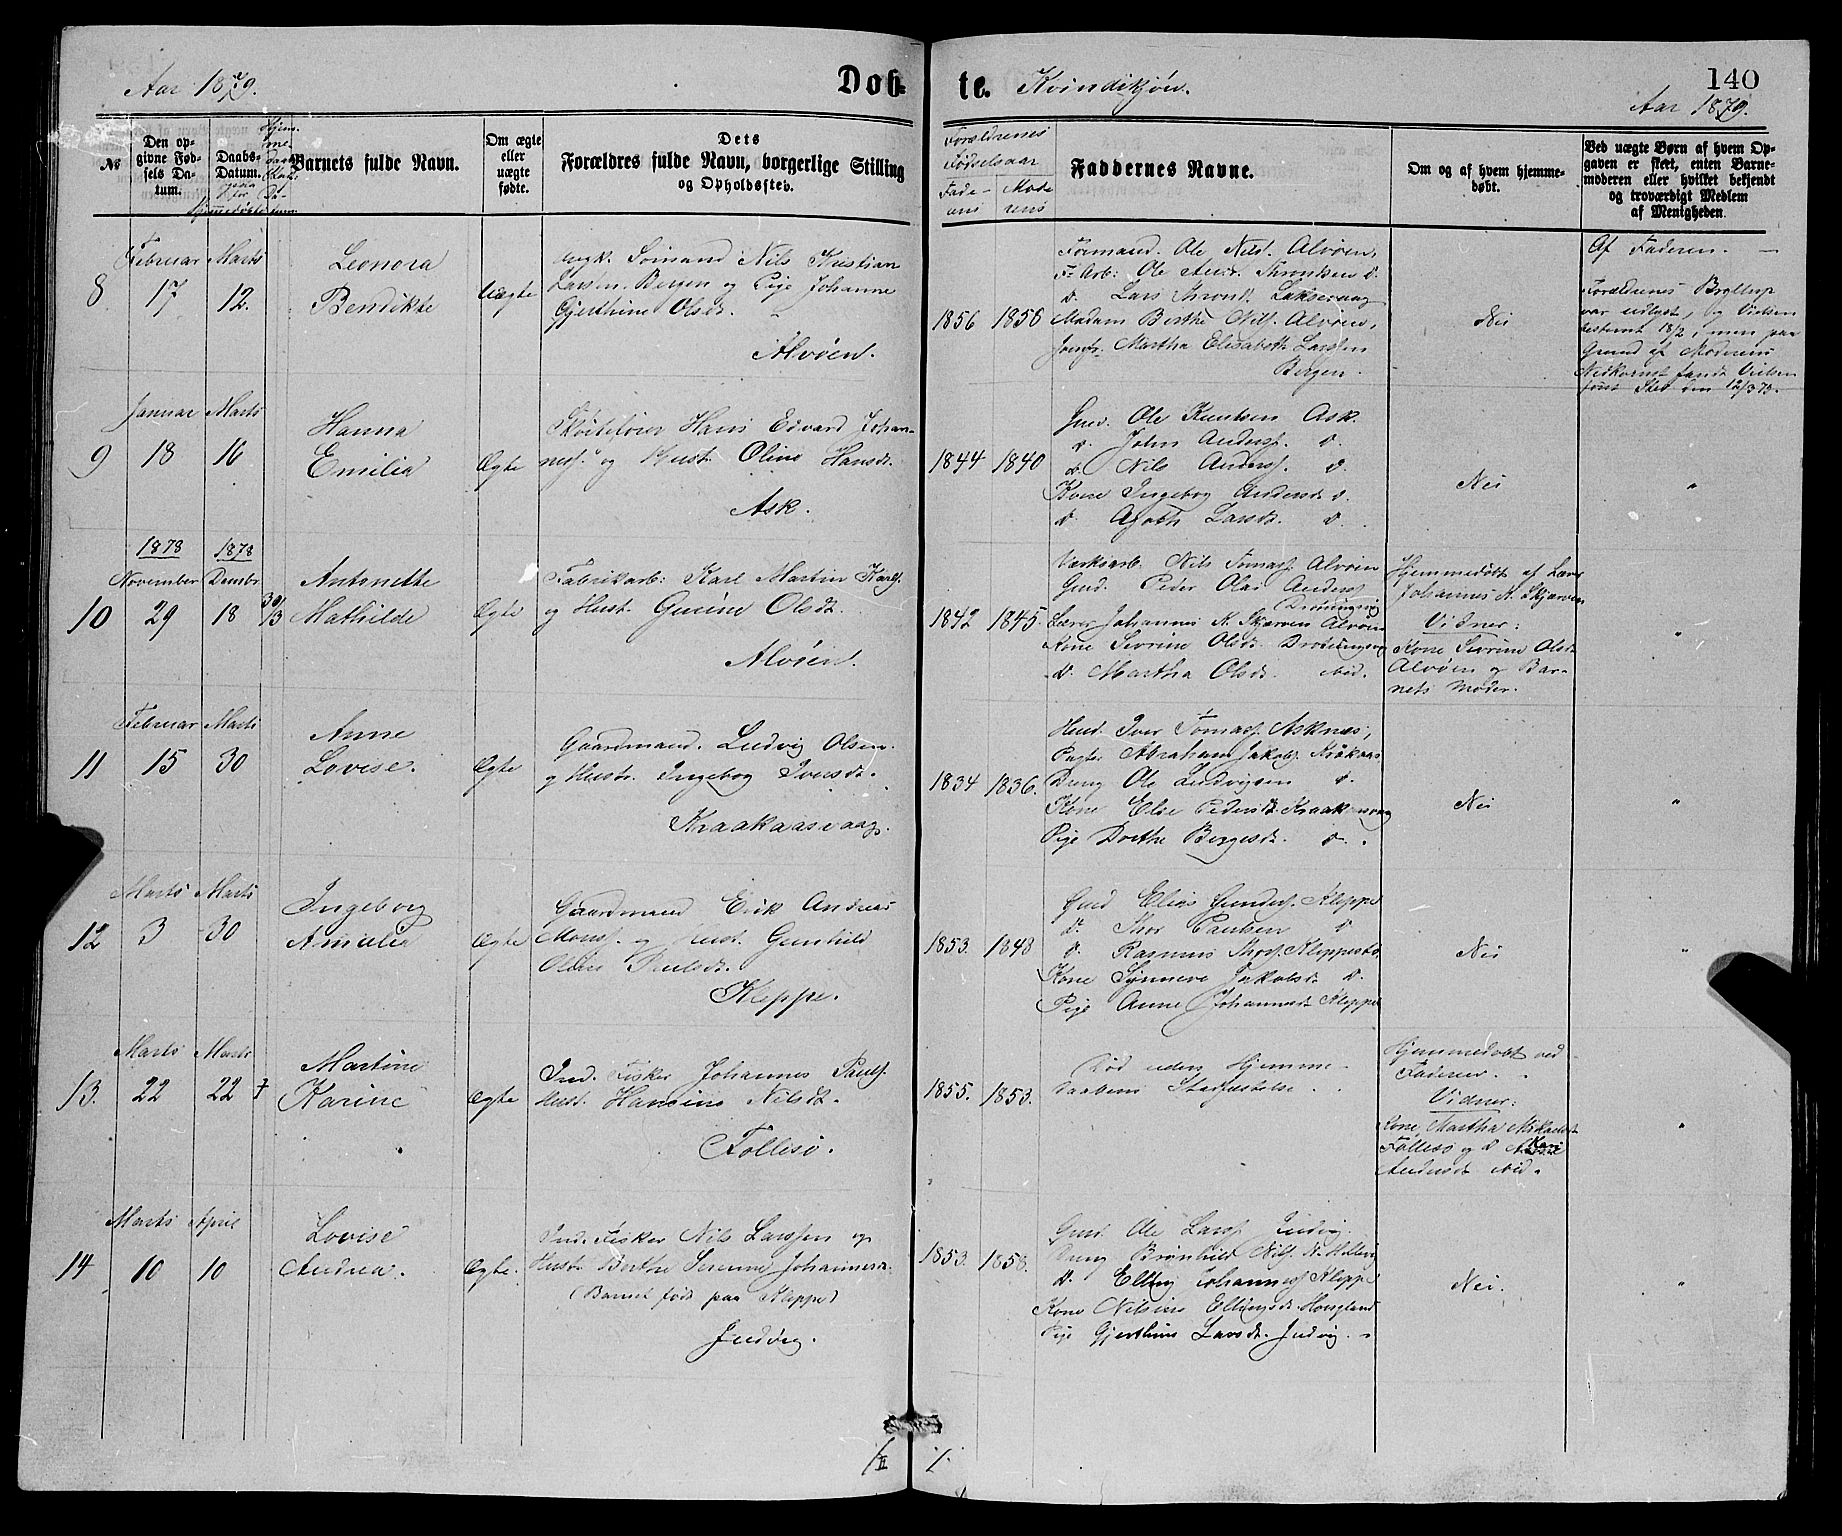 Aar 1879.
Døb-
te.
Kvindekjøn.
140
Aar 1879.
№
Den op-
givne Fød-
sels Da-
tum.
Daabs-
Datum.
Barnets fulde Navn.
Om ægte
eller
uægte
fødte.
Dets
Forældres fulde Navn, borgerlige Stilling
og Opholdssted.
Forældrenes
Fødselsaar
Fade-
rens
Mode
rens
Faddernes Navne.
Om og af hvem hjemme-
døbt.
Ved uægte Børn af hvem Op-
gaven er skeet, enten Barne-
moderen eller hvilket bekjendt
og troværdigt Medlem
af Menigheden.
8
Februar
17
Marts
12.
Leonora
Bendikte
Uægte
Ungk. Sømand Nils Kristian
Larsen Bergen og Pige Johanne
Gjerthine Olsdt.
Alvøen.
1856
1856
Formand. Ole Nils. Alvøen,
F. Arb: Ole And. Thronsen d.
d. Lars Thrond. Laksevaag
Madam Berthe Nils. Alvøen,
Jomfr. Martha Elisabeth Larsen
Bergen.
Nei
Af Faderen.
Forældrenes Bryllup
var udlyst, og Vielsen
bestemt 18/2, men paa
Grund af Moderens
Nedkomst fandt Vielsen
først Sted den 12/3 79.
9
Januar
18
Marts
16
Hanna
Emilia
Ægte
Skøitefører Hans Edvard Johan-
nes. og Hust. Oline Hansdt.
Ask.
1844
1840
Gmd. Ole Knutsen Ask.
d. John Anders. d.
d. Nils Anders. d.
Kone Ingebog Andersdt d.
d. Agathe Larsdt. d.
Nei
"
10
1878
November
29
1878
Decmbr
18
30/3
Antonette
Mathilde
Ægte
Fabrikarb: Karl Martin Karls.
og Hust. Gurine Olsdt.
Alvøen.
1842
1845.
Værksarb. Nils Tomas. Alvøen
Gmd. Peder Olai Anders.
Drotningsvig
Lærer Johannes K. Skjærven Alvøen
Kone Severine Olsdt. Drotningsvig
d. Martha Olsdt. ibid.
Hjemmedøbt af Lærer
Johannes K. Skjærven
Vidner:
Kone Severine Olsdt.
Alvøen og Bar-
nets Moder.
"
11
Februar
15
Marts
30
Anne
Lovise.
Ægte
Gaardmand. Ludvig Olsen.
og Hustr. Ingebog Iversdt.
Kraakaasvaag.
1834
1836.
Iver Tomas. Asknæs,
Abraham Jakobs. Kråkaas
Dreng Ole Ludvigsen d.
Kone Else Pedersdt. Kraakaasvaag
Pige Dorthe Børgesdt. d.
Nei
"
12
Marts
3
Marts
30
Ingeborg
Amalia
Ægte
Gaardmand Erik Andreas
Mons. og Hust. Gunhild
Oline Paulsdt.
Kleppe.
1853.
1848
Gmd Elias Gunders. Kleppe
d. Thor Paulsen d
d. Rasmus Thors. Kleppestø
Kone Synneve Jakobsdt d.
Pige Anne Johannesdt Kleppe
Nei
"
13.
Marts
22
Marts
22
Martine
Karine
Ægte
Ind. Fisker Johannes Pauls.
Hust. Hansine Nilsdt.
Follesø.
1855.
1853.
Død uden Hjemme-
daabens Stadfæstelse.
Hjemmedøbt ved
Faderen.
Vidner:
Kone Martha Mikaelsdt
Follesø og d Kari
Andersdt ibid.
"
14
Marts
10
April
10
Lovise
Andrea.
Ægte.
Ind. Fisker Nils Larssen og
Hustr. Berthe Serine Johannesdt.
(Barnet født paa Kleppe)
Juvig.
1853.
1858.
Gmd. Ole Larss. Juvig
Dreng Brønhild Nils. N. Hillevig
d. Elling Johanness. Kleppe
Kone Nilsine Ellingsdt. Hougland
Pige Gjerthine Larsdt. Juvig.
Nei.
"